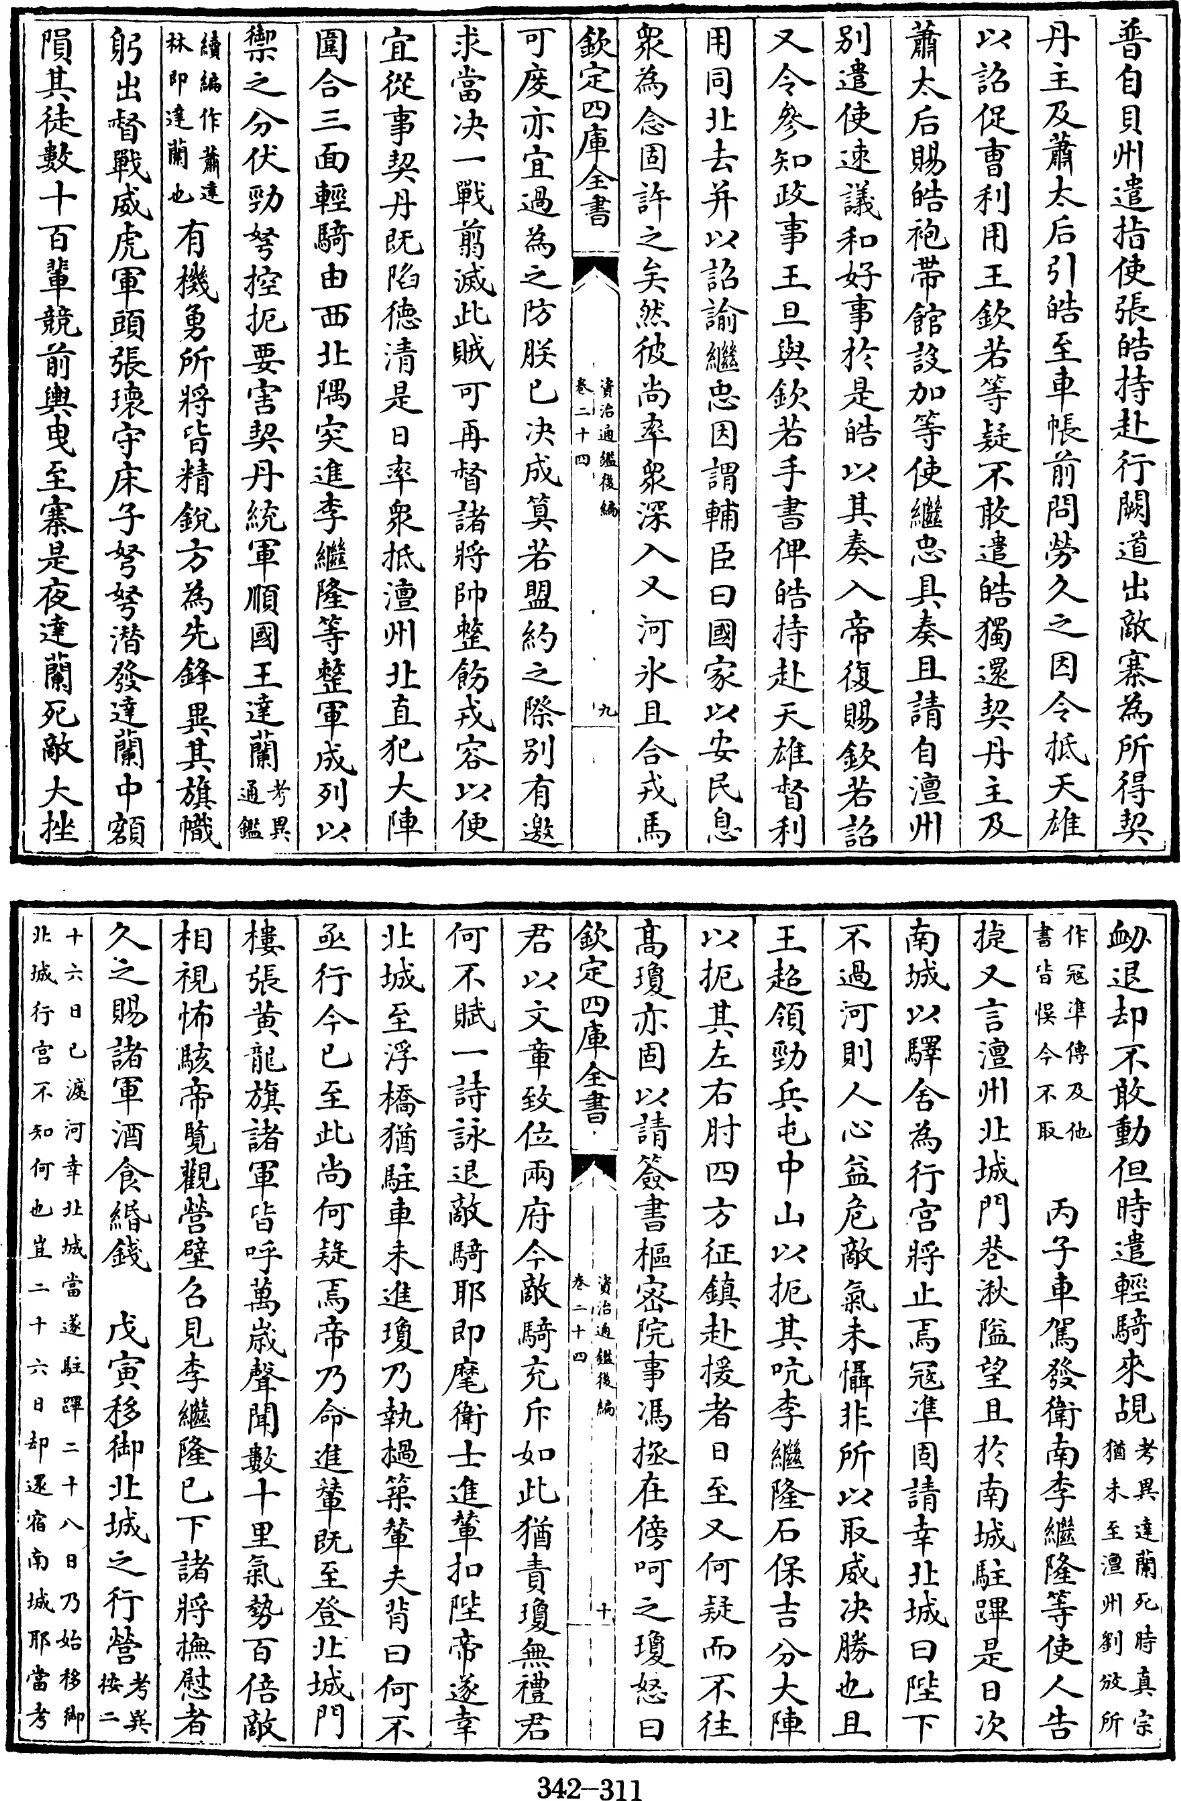 普自貝州遣指使張皓持赴行闕道出敵寨為所得契
丹主及蕭太后引皓至車帳前問勞久之因令抵天雄
以詔促曹利用王欽若等疑不敢遣皓獨還契丹主及
蕭太后賜皓袍帶館設加等使繼忠具奏且請自澶州
別遣使速議和好事於是皓以其奏入帝復賜欽若詔
又令參知政事王旦與欽若手書俾皓持赴天雄督利
用同北去并以詔諭繼忠因謂輔臣曰國家以安民息
衆為念固許之矣然彼尚率衆深入又河氷且合戎馬
欽定四庫全書
資治通鑑後編
卷二十四
九
可度亦宜過為之防朕已决成算若盟約之際別有邀
求當决一戰翦滅此賊可再督諸將帥整飭戎容以便
宜從事契丹既陷德清是日率衆抵澶州北直犯大陣
圍合三面輕騎由西北隅突進李繼隆等整軍成列以
禦之分伏勁弩控扼要害契丹統軍順國王達蘭考異通鑑
續編作蕭達林即達蘭也有機勇所將皆精銳方為先鋒異其旗幟
躬出督戰威虎軍頭張瓌守床子弩弩潛發達蘭中額
隕其徒數十百輩競前輿曳至寨是夜達蘭死敵大挫
衂退却不敢動但時遣輕騎來覘考異達蘭死時真宗猶未至澶州劉攽所
作冦準傳及他書皆悞今不取　丙子車駕發衛南李繼隆等使人告
捷又言澶州北城門巷湫隘望且於南城駐蹕是日次
南城以驛舍為行宮將止焉冦凖固請幸北城曰陛下
不過河則人心益危敵氣未懾非所以取威决勝也且
王超領勁兵屯中山以扼其吭李繼隆石保吉分大陣
以扼其左右肘四方征鎮赴援者日至又何疑而不往
髙瓊亦固以請簽書樞密院事馮拯在傍呵之瓊怒曰
欽定四庫全書
資治通鑑後編
卷二十四
十
君以文章致位兩府今敵騎充斥如此猶責瓊無禮君
何不賦一詩詠退敵騎耶即麾衛士進輦扣陛帝遂幸
北城至浮橋猶駐車未進瓊乃執撾築輦夫背曰何不
亟行今已至此尚何疑焉帝乃命進輦既至登北城門
樓張黃龍旗諸軍皆呼萬歲聲聞數十里氣勢百倍敵
相視怖駭帝覧觀營壁召見李繼隆已下諸將撫慰者
久之賜諸軍酒食緡錢　戊寅移御北城之行營考異按二
十六日已渡河幸北城當遂駐蹕二十八日乃始移御北城行宫不知何也豈二十六日却還宿南城耶當考
342-311